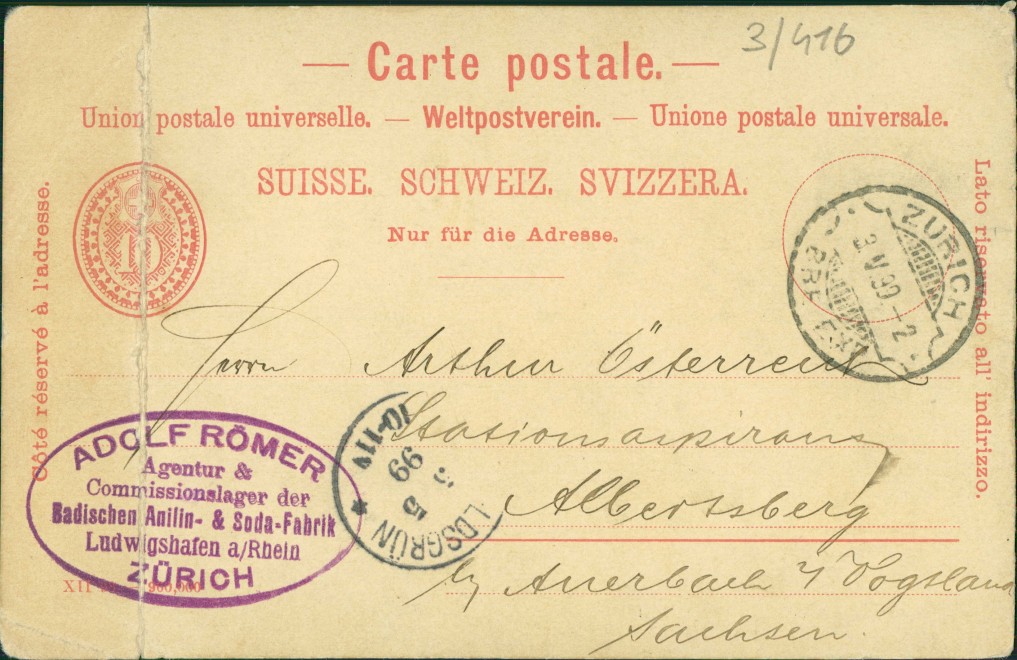 3/416
— Carte postale. —
Union postale universelle. — Weltpostverein. — Unione postale universale.
SUISSE. SCHWEIZ. SVIZZERA.
Nur für die Adresse.
Côté réservé à l'adresse.
Lato riservato all' indirizzo.
10
ZÜRICH
3.V.99.-2
BRF. EXP.
Herrn Arthur Österreich
Stationsaspirant
Albertsberg
b/ Auerbach i/ Vogtland
Sachsen.
10-11V
5 5 99
LDSGRÜN
ADOLF RÖMER
Agentur &
Commissionslager der
Badischen Anilin- & Soda-Fabrik
Ludwigshafen a/Rhein
ZÜRICH
XII 900,000